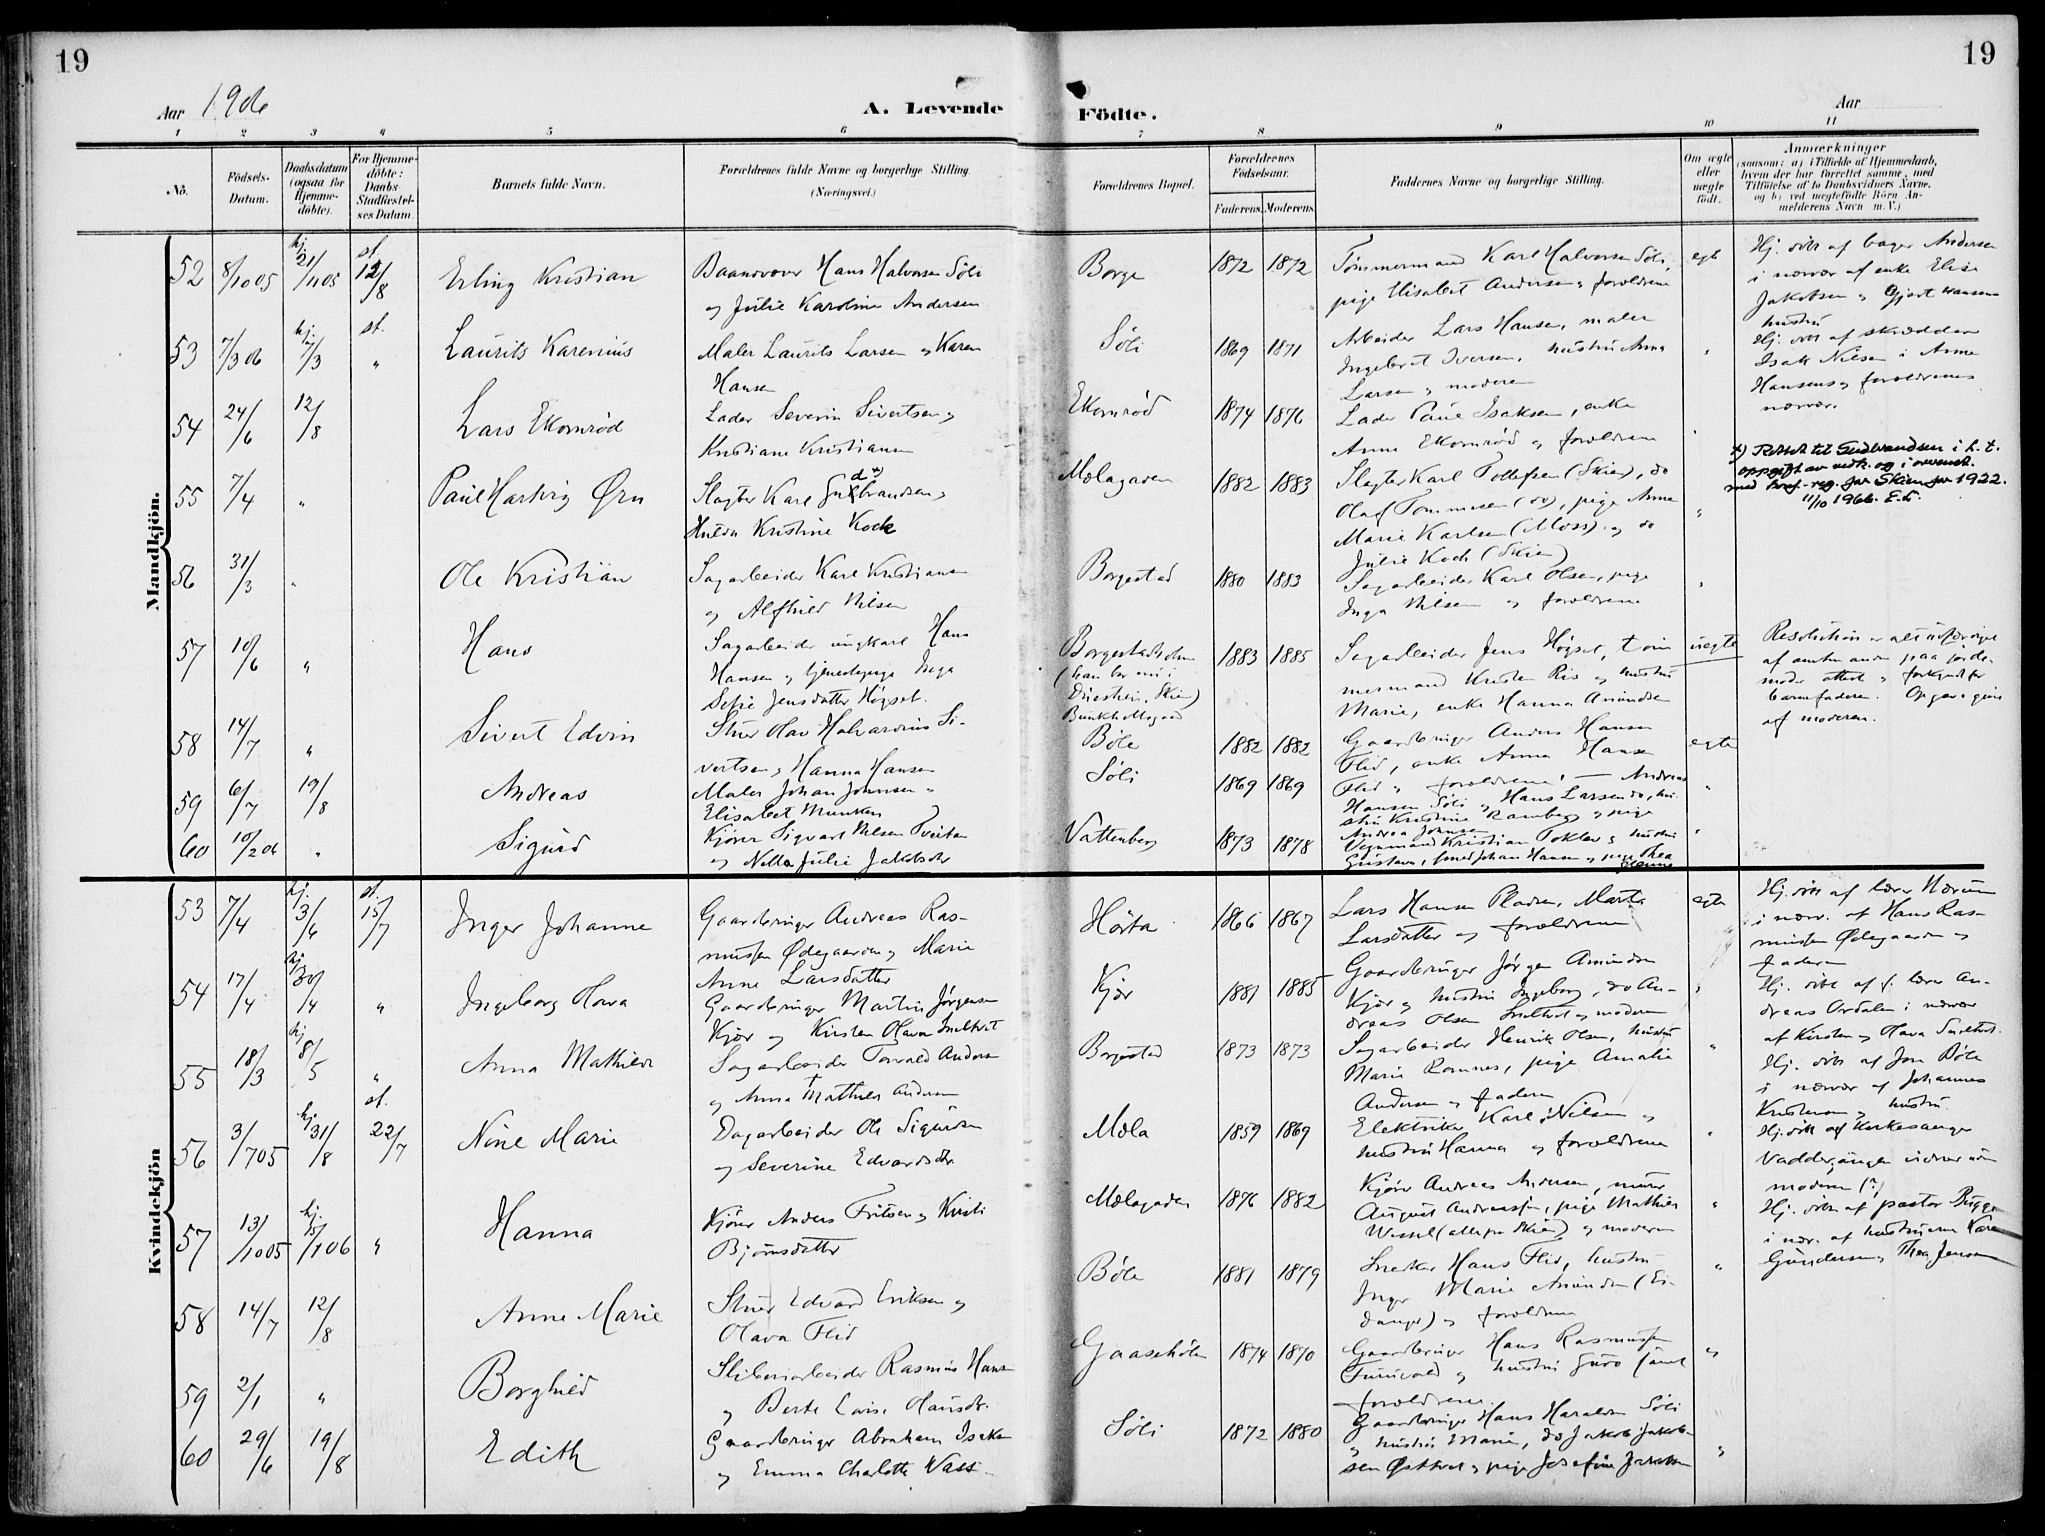 19
19
Aar 1906
A. Levende
Födte.
Aar
1 2 3 4 5 6 7 8 9 10 11
No.
Födsels-
Datum.
Daabsdatum
(ogsaa for
Hjemme-
döbte).
For Hjemme-
döbte:
Daabs-
Stadfæstel-
ses Datum.
Barnets fulde Navn.
Forældrenes fulde Navne og borgerlige Stilling.
(Næringsvei.)
Forældrenes Bopæl.
Forældrenes
Födselsaar.
Faderens. Moderens.
Faddernes Navne og borgerlige Stilling.
Om ægte
eller
uægte
födt.
Anmærkninger
(saasom: a) i Tilfælde af Hjemmedaab,
hvem der har forrettet samme, med
Tilföielse af to Daabsvidners Navne,
og b) ved uægtefödte Börn An-
melderens Navn m. V.)
Mandkjön.
52 8/10 05 hj. 21/11 05 st. 12/8 Erling Kristian
Hans Halvorsen Söli
og Julie Karoline Andersen
Borge 1872 1872
Tömmermand Karl Halvorsen Söli,
pige Elisabet Andersen og forældrene
egte
Hj. döbt af bager Andersen
i nærvær af enke Elise
Jakobsen og Gjert Hansens
hustru
53 7/3 06 hj. 7/3 st. " Laurits Karenius
Maler Laurits Larsen og Karen
Hansen
Söli 1869 1871
Arbeider Lars Hansen, maler
Ingebret Iversen, hustru Anna
Larsen og moderen
"
Hj. döbt af skrædder
Isak Nilsen i Anne
Hansens og forældrenes
nærvær.
54 24/6 12/8 Lars Ekornrød
Lader Severin Sivertsen og
Kristiane Kristiansen
Ekornrød 1874 1876
Lader Paul Isaksen, enke
Anne Ekornrød og forældrene
55 7/4 " Paul Hartvig Ørn
Slagter Karl Gudbrandsen x) og
Hulda Kristine Kock
Mælagaden 1882 1883
Slagter Karl Tollefsen (Skien), do
Olaf Tommesen (do), pige Anna
Marie Karlsen (Moss) og do
Julie Koch (Skien)
"
x) Rettet til Gudbrandsen i h. t.
oppgift av vedk. og i overenst.
med konf.-reg. for Skien for 1922.
11/10 1966. E.S.
56 31/3 " Ole Kristian
Sagarbeider Karl Kristiansen
og Alfhild Nilsen
Borgestad 1880 1883
Sagarbeider Karl Olsen, pige
Inga Nilsen og forældrene
"
57 10/6 " Hans
Sagarbeider ungkarl Hans
Hansen og tjenestepige Inga
Sofie Jensdatter Högset.
Borgestadholm
(han bor nu i
Skien)
1883 1885
Sagarbeider Jens Högset, töm-
mermand Kristen Ris og hustru
Marie, enke Hanna Amundsen
uegte
paa jorde-
moder attest
barnefaderen. Opgave given
af moderen.
58 14/7 " Sivert Edvin
Stuer Olav Halvardius Si-
vertsen og Hanna Hansen
Böle 1882 1882
Gaardbruger Anders Hansen
Flid, enke Anna Hansen
Flid og forældrene.
egte
59 6/7 19/8 Andreas
Maler Johan Johnsen og
Elisabet Munken
Söli 1869 1869
Andreas
Hansen Söli og Hans Larsen do, hu-
stru Kristine Ramberg og pige
Andrea Johnsen
"
60 10/2 06 " Sigurd
Kjörer Sigvart Nilsen Tveiten
og Nella Julie Jakobsdtr
Vattenberg 1873 1878
Vognmand Kristian Toklev og hustru
Gustava, smed Johan Hansen og pige Thea
"
Kvindekjön
53 7/4 hj. 3/6 st. 15/7 Inger Johanne
Gaardbruger Andreas Ras-
mussen Ødegaarden og Marie
Anne Larsdatter
Hörta 1866 1867
Lars Hansen Pladsen, Marta
Larsdatter og forældrene
egte
Hj. döbt af lærer Nærum
i nærv. af Hans Ras-
mussen Ødegaarden og
faderen
54 17/4 hj. 30/4 " Ingeborg Olava
Gaardbruger Martin Jörgensen
Kjör og Kirsten Olava Snelltvet
Kjör 1881 1885
Gaardbruger Jörgen Amundsen
Kjör og hustru Ingeborg, do An-
dreas Olsen Snelltvet og moderen
"
Hj. döbt af f. lærer An-
dreas Ordalen i nærvær
af Kirsten og Olava Snelltvet.
55 18/3 hj. 8/5 " Anna Mathilde
Sagarbeider Torvald Andersen
og Anna Mathilde Andersen
Borgestad 1873 1873
Sagarbeider Henrik Olsen, hustru
Marie Romnes, pige Amalie
Andersen og faderen
"
Hj. döbt af Jon Böle
i nærvær af Johannes
Kristensen og hustru.
56 3/7 05 hj. 31/8 st. 22/7 Nine Marie
Dagarbeider Ole Sigurdsen
og Severine Edvardsdtr.
Mæla 1859 1869
Elektriker Karl Nilsen og
hustru Hanna og forældrene
"
Hj. döbt af Kirkesanger
moderen (?)
57 13/10 05 hj. 15/1 06 " Hanna
Kjörer Anders Fritsen og Kirsti
Bjørnsdatter
Mælagaden 1876 1882
Kjörer Andreas Andersen, murer
August Andreassen, pige Mathilde
Wessel (alle fra Skien) og moderen
"
Hj. döbt af pastor Bugge
i nær. af hustruerne Karen
Gundersen og Thea Jensen
58 14/7 12/8 Anne Marie
Stuer Edvard Eriksen og
Olava Flid
Böle 1881 1879
Snedker Hans Flid, hustru
Inger Marie Amundsen (Ei-
danger) og forældrene
"
59 2/1 " Borghild
Sliberiarbeider Rasmus Hansen
og Berte Lovise Hansdtr.
Gaasehölen 1874 1870
Gaardbruger Hans Rasmussen
og hustru Guro samt
forældrene.
"
60 29/6 19/8 Edith
Gaardbruger Abraham Isaksen
og Emma Charlotte Wass
Söli 1872 1880
Gaardbruger Hans Haraldsen Söli
og hustru Marie, do Jakob Jakob-
sen og pige Josefine
"